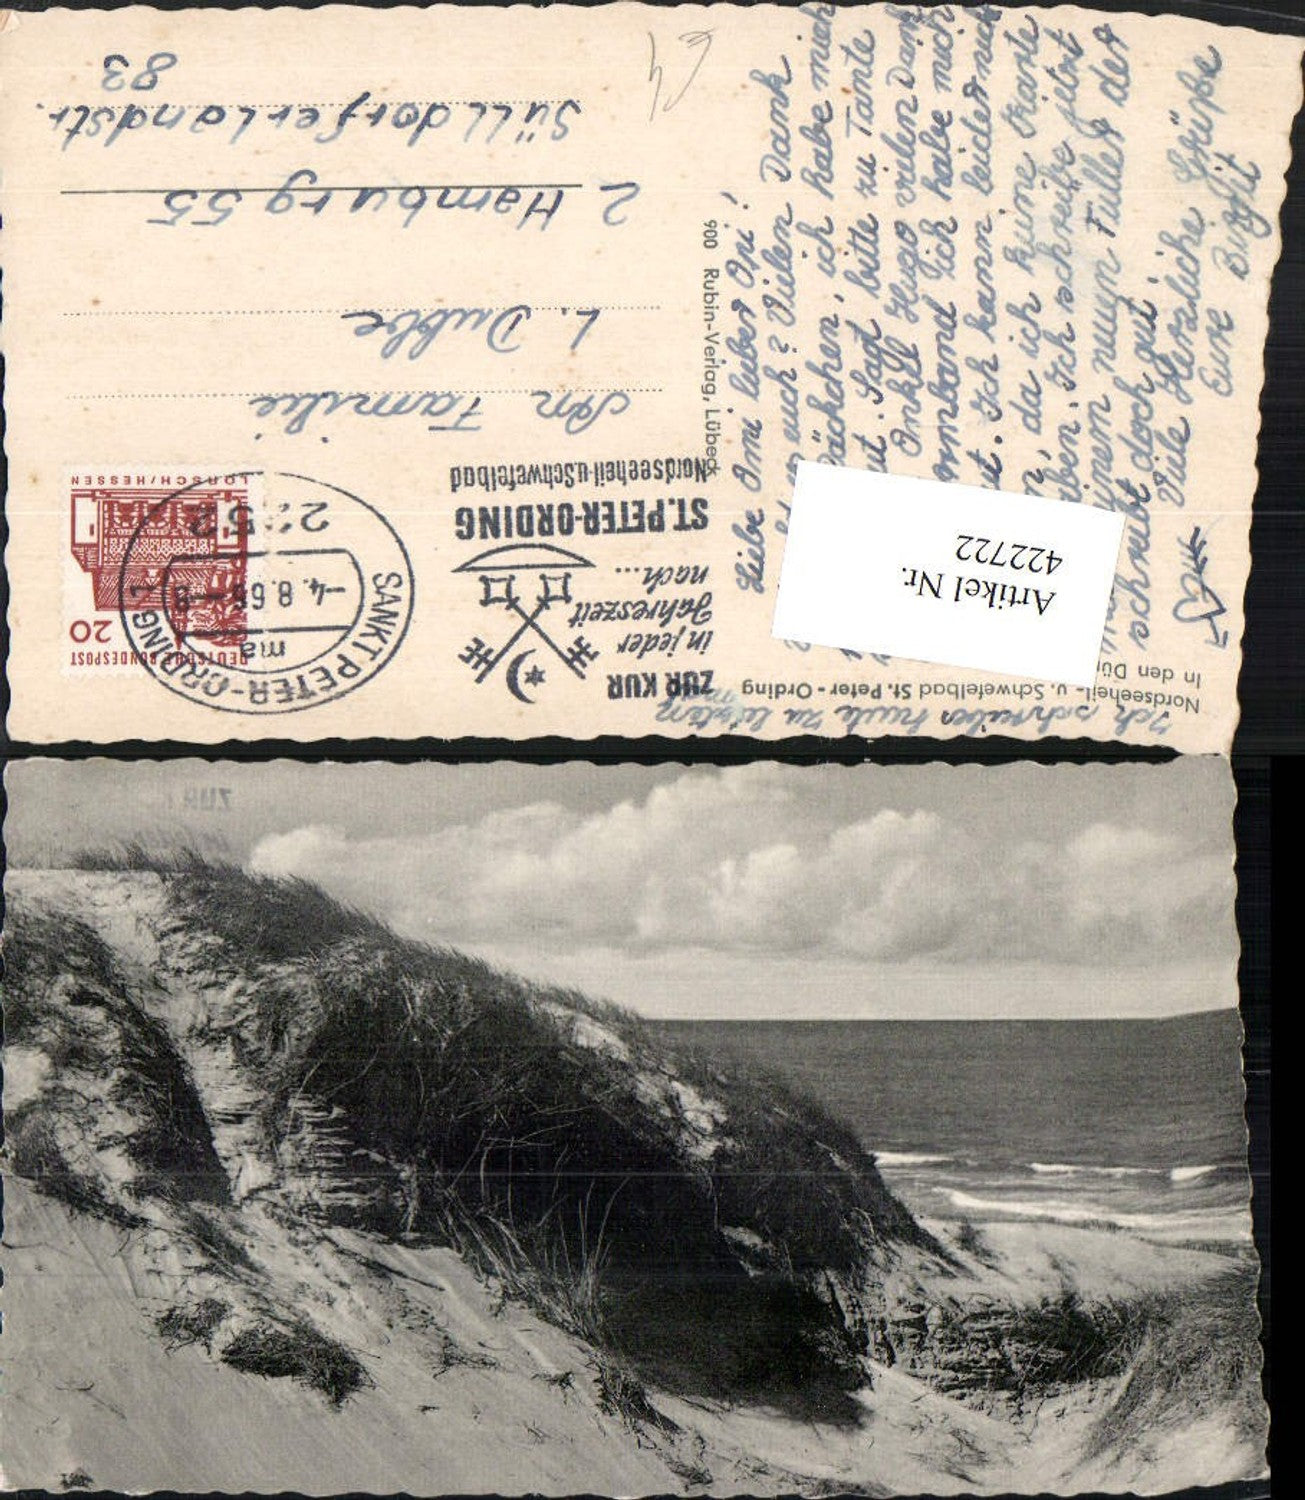 Nordseeheil- u. Schwefelbad St. Peter-Ording
In den Dü
900 Rubin-Verlag, Lübeck
ZUR KUR
in jeder
Jahreszeit
nach...
ST. PETER-ORDING
Nordseeheil-u.Schwefelbad
SANKT PETER-ORDING 1
ma
-4.8.66-8
2252
DEUTSCHE BUNDESPOST
20
LORSCH/HESSEN
An Familie
L. Dubbe
2 Hamburg 55
Sülldorferlandstr.
83
Liebe Omi lieber Opi!
euch? Vielen Dank
päckchen, ich habe mich
Sagt bitte zu Tante
Onkel Hugo vielen Dank
armband. Ich habe mich
Ich kann leider nich
da ich keine Karte
Ich schreibe jetzt
neuen Füller der
schreibt doch gut.
Viele Herzliche Grüße
Eure Birgit
Ich schreibe heute zu letzten
Artikel Nr.
422722